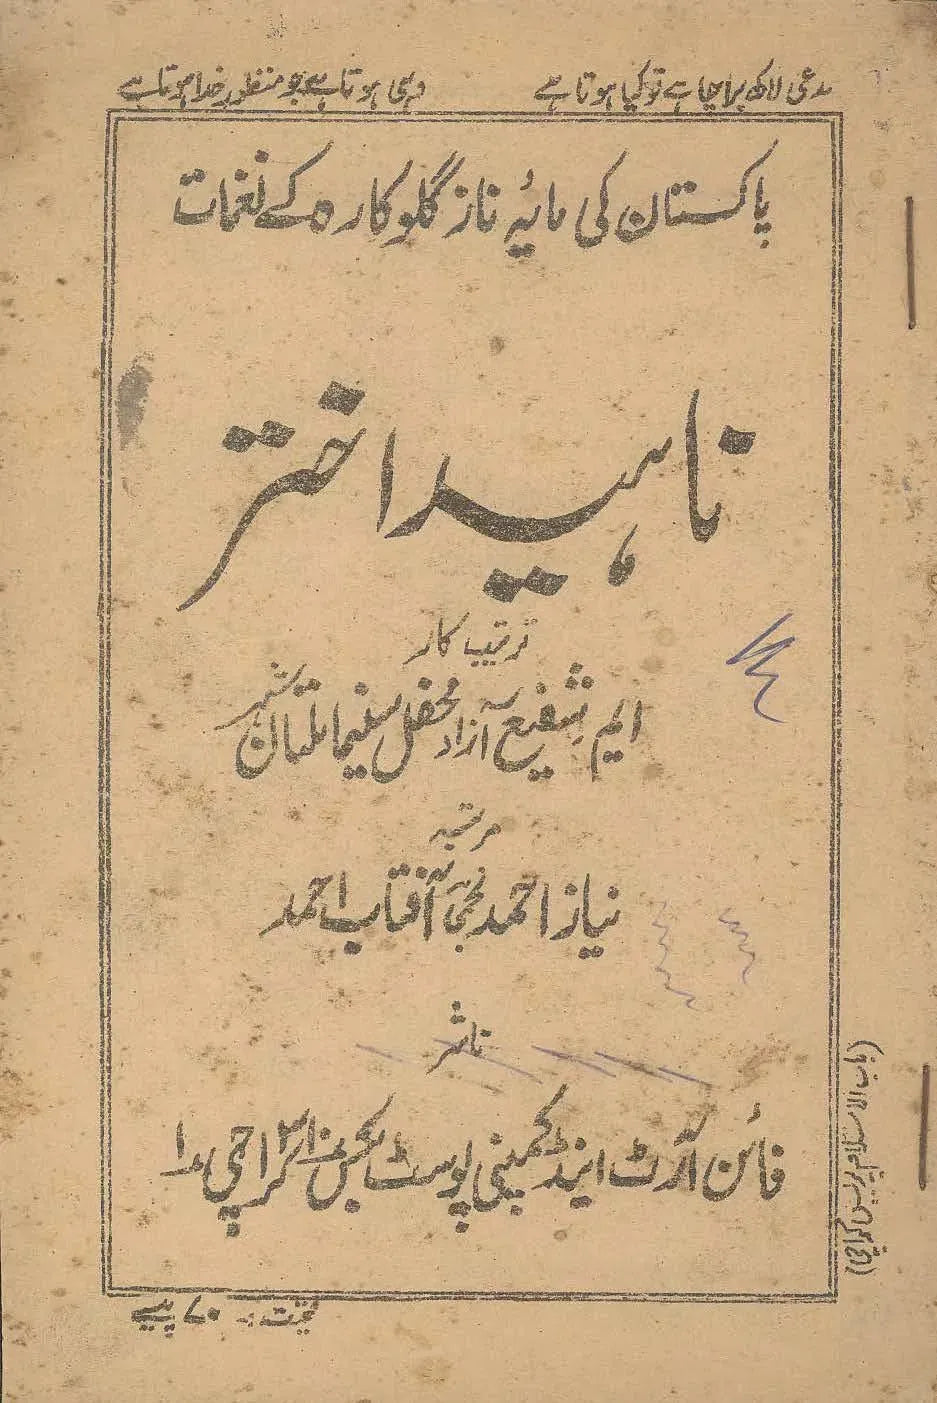 مدعی لاکھ برا چاہے تو کیا ہوتا ہے وہی ہوتا ہے جو منظورِ خدا ہوتا ہے
پاکستان کی مایۂ ناز گلوکارہ کے نغمات
ناہید اختر
ترتیب کار
ایم شفیع آزاد محفل سینما ملتان شہر
مرتبہ
نیاز احمد آفتاب احمد
ناشر
فائن آرٹ اینڈ کمپنی پوسٹ بکس کراچی ۱
قیمت :۔ ۷۰ پیسے
(باب الاسلام پریس کراچی)